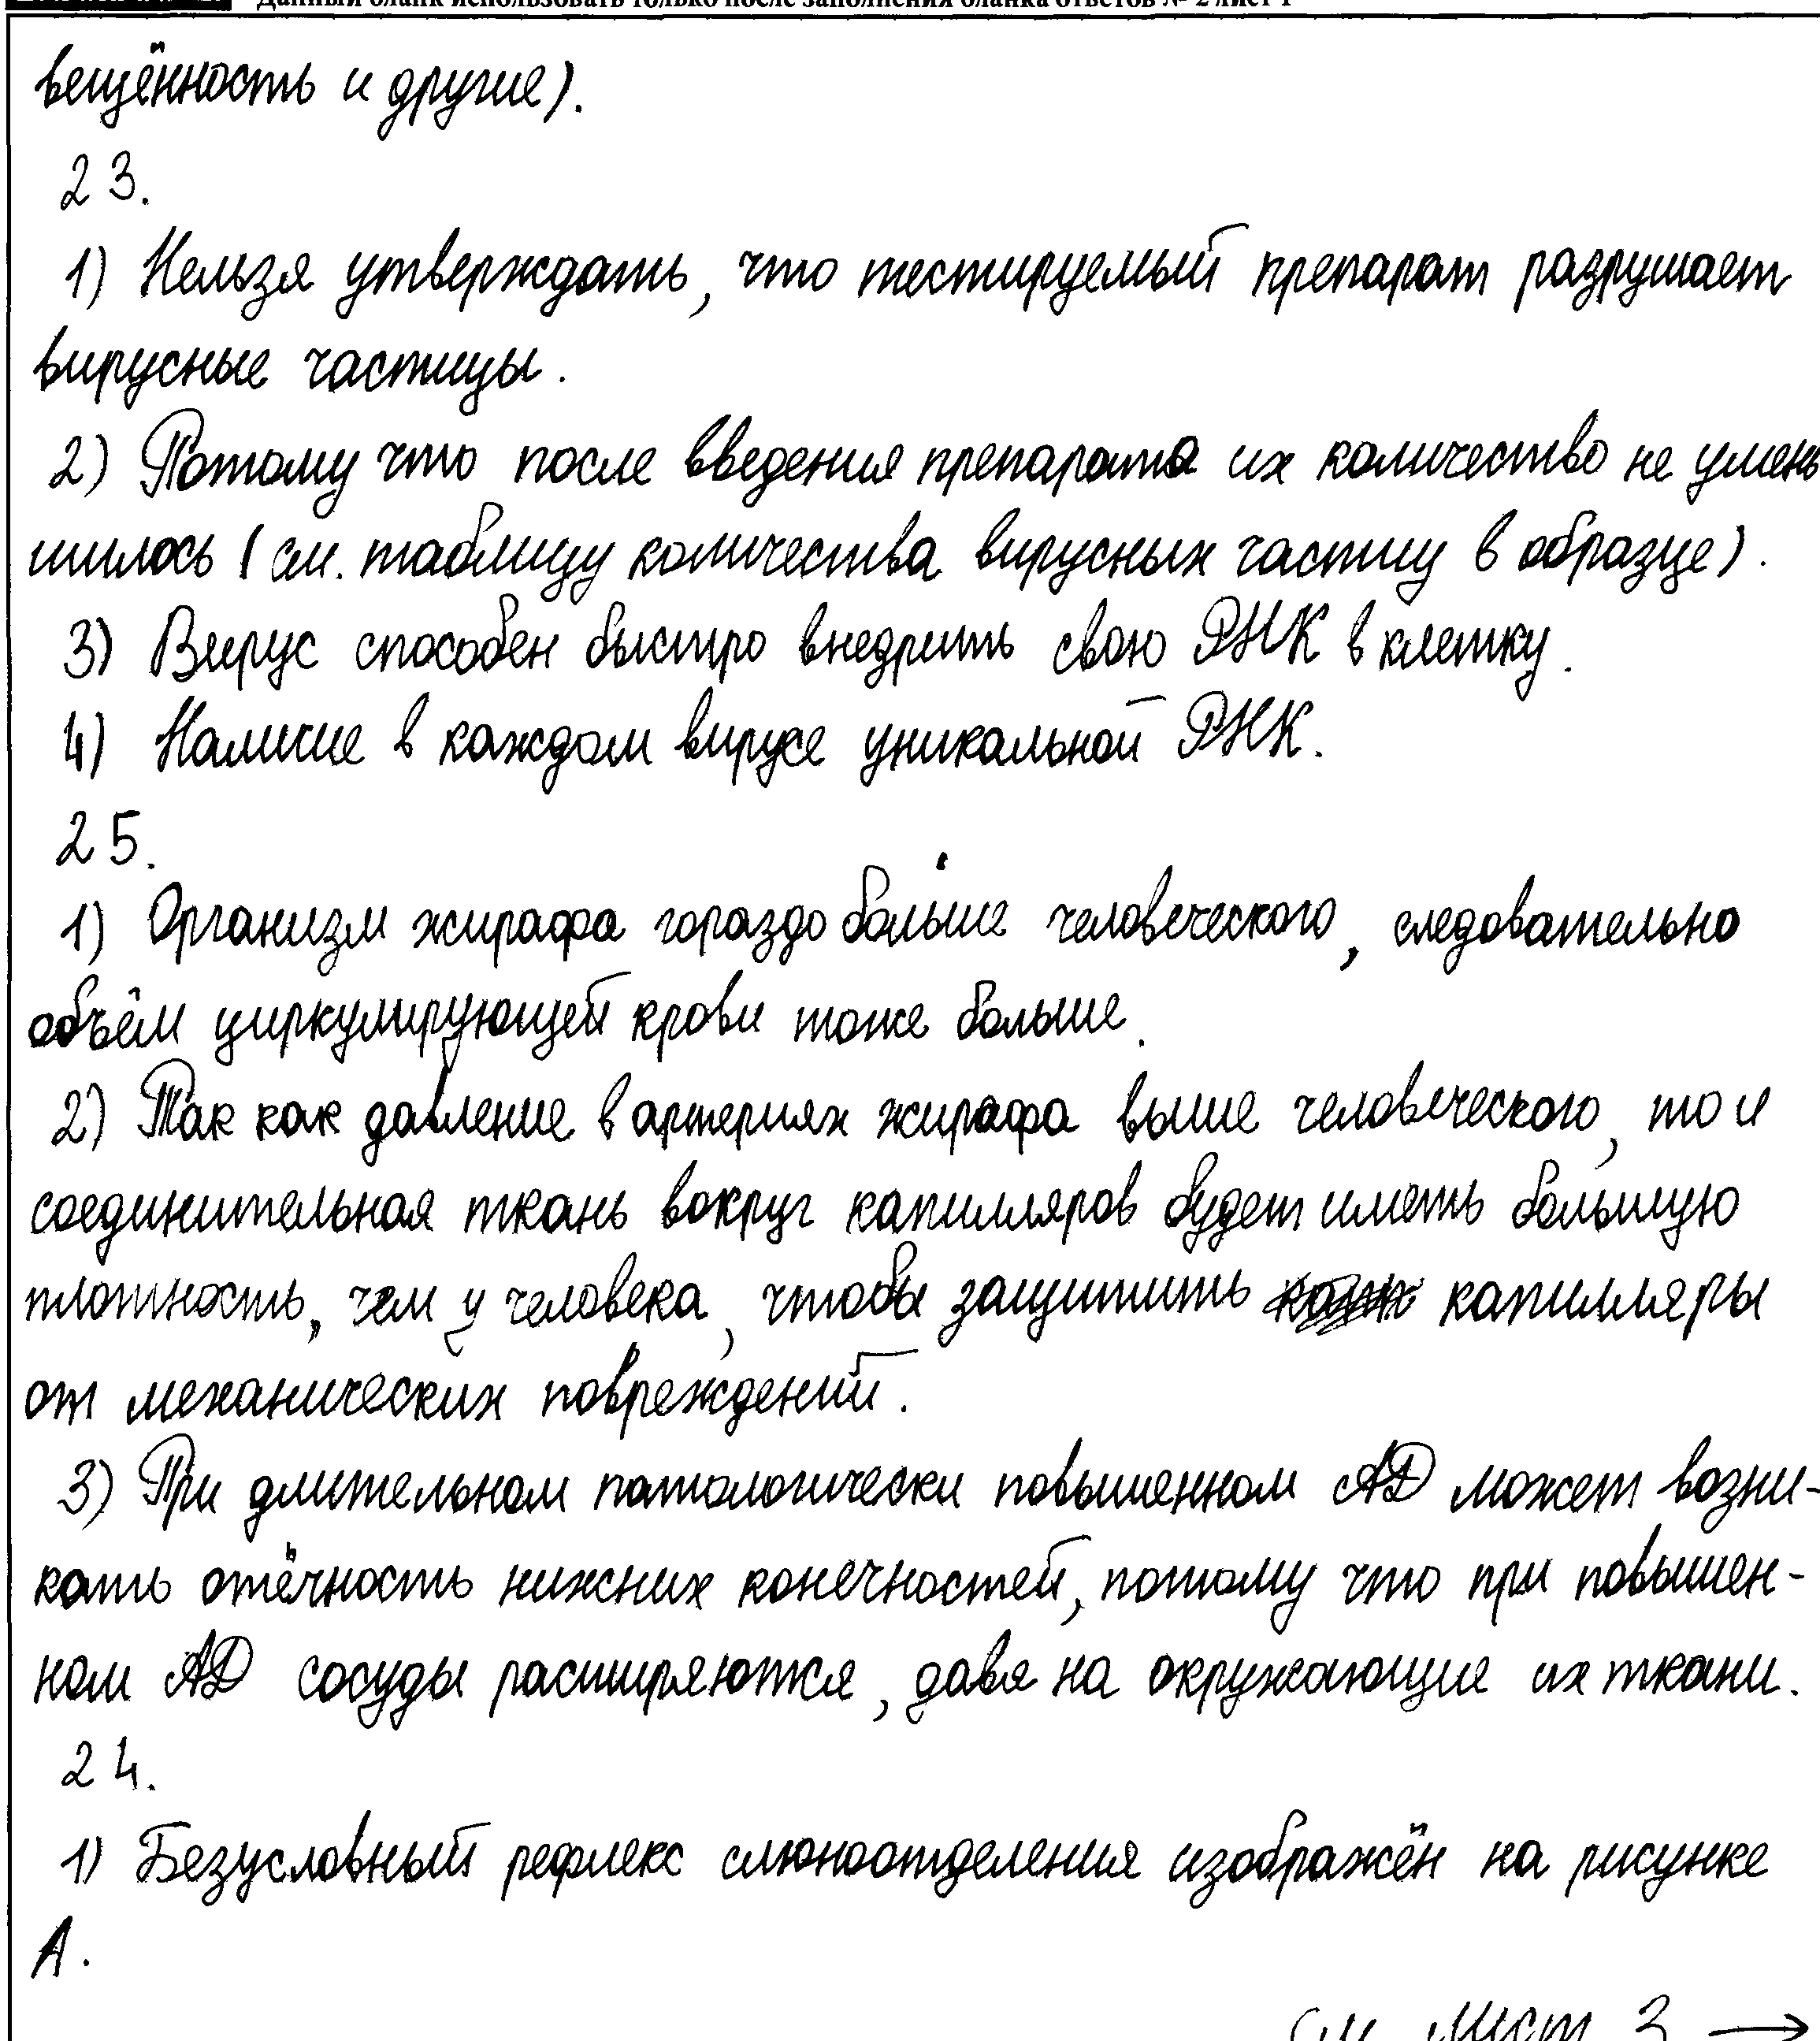 Данный бланк использовать только после заполнения бланка ответов № 2 лист 1
вещённость и другие).
23.
1) Нельзя утверждать, что тестируемый препарат разрушает
вирусные частицы.
2) Потому что после введения препарата их количество не умень
шилось (см. таблицу количества вирусных частиц в образце).
3) Вирус способен быстро внедрить свою РНК в клетку.
4) Наличие в каждом вирусе уникальной РНК.
25.
1) Организм жирафа гораздо больше человеческого, следовательно
объём циркулирующей крови тоже больше.
2) Так как давление в артериях жирафа выше человеческого, то и
соединительная ткань вокруг капилляров будет иметь большую
плотность, чем у человека, чтобы защитить капилляры
от механических повреждений.
3) При длительном патологически повышенном АД может возни-
кать отёчность нижних конечностей, потому что при повышен-
ном АД сосуды расширяются, давя на окружающие их ткани.
24.
1) Безусловный рефлекс слюноотделения изображён на рисунке
А.
См лист 3 →